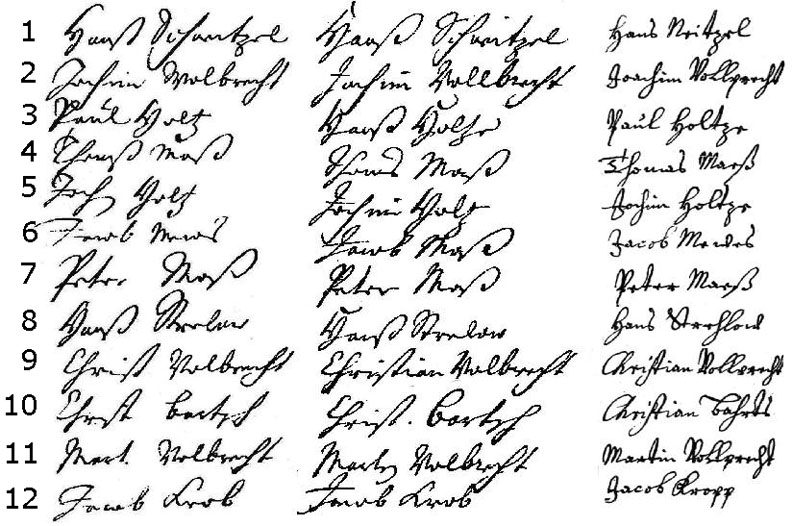 1 Hanß Schwitzel Hanß Schwitzel Hans Neitzel
2 Jochim Volbrecht Jochim Vollbrecht Joachim Vollprecht
3 Paul Holtz Hanß Holtze Paul Holtze
4 Thomß Maß Thoms Maß Thomas Maeß
5 Joch Holtz Jochim Holtz Jochim Holtze
6 Jacob Mewes Jacob Maß Jacob Mewes
7 Peter Maß Peter Maß Peter Maeß
8 Hanß Strelow Hanß Strelow Hans Strehlow
9 Christ Volbrecht Christian Volbrecht Christian Vollprecht
10 Christ Bartsch Christ. Bartsch Christian Bahrts
11 Mart. Volbrecht Marten Volbrecht Martin Vollprecht
12 Jacob Krob Jacob Krob Jacob Kropp